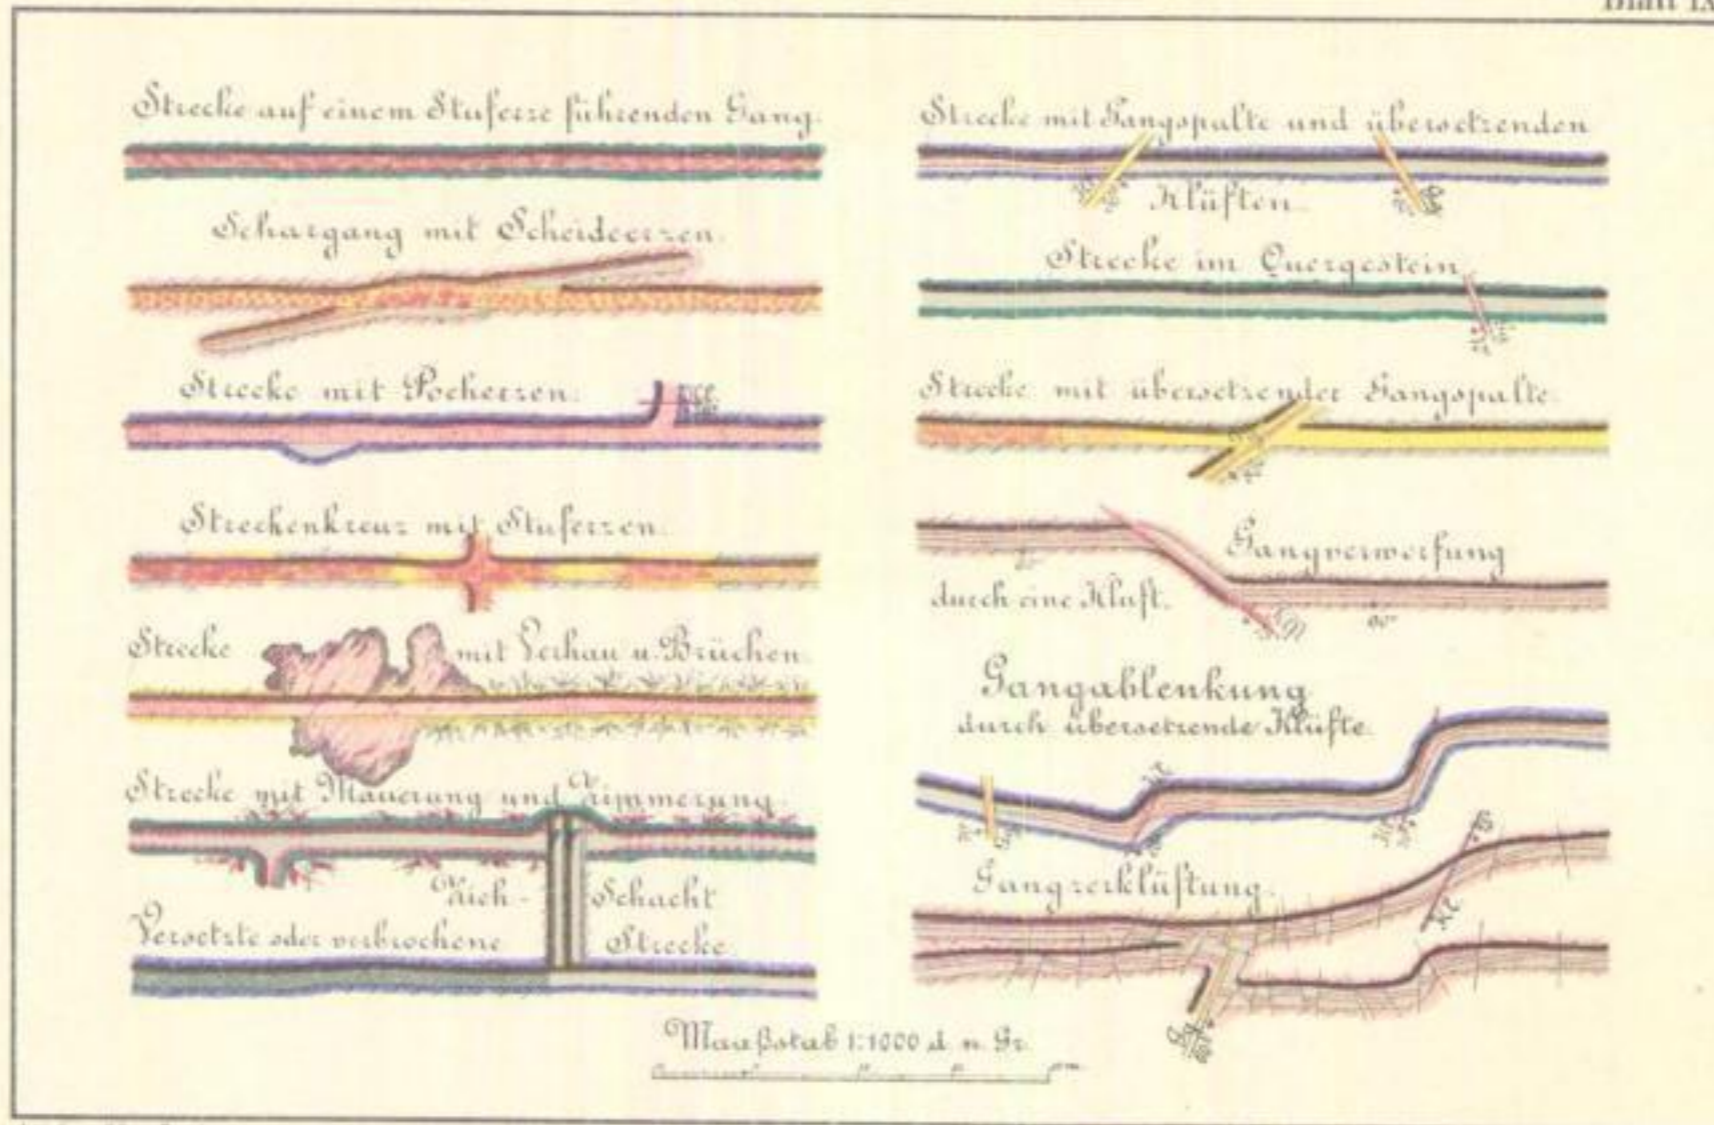 Blatt IX
Strecke auf einem Stuferze führenden Gang.
Schargang mit Scheideerzen.
Strecke mit Pocherzen.
Streckenkreuz mit Stuferzen.
Strecke mit Verhau u. Brüchen.
Strecke mit Mauerung und Zimmerung.
Schacht
Versetzte oder verbrochene Strecke.
Strecke mit Gangspalte und übersetzenden
Klüften.
Strecke im Quergestein
Strecke mit übersetzender Gangspalte.
Gangverwerfung
durch eine Kluft.
Gangablenkung
durch übersetzende Klüfte.
Gangzerklüftung.
Kl
Maaßstab 1:1000 d. n. Gr.